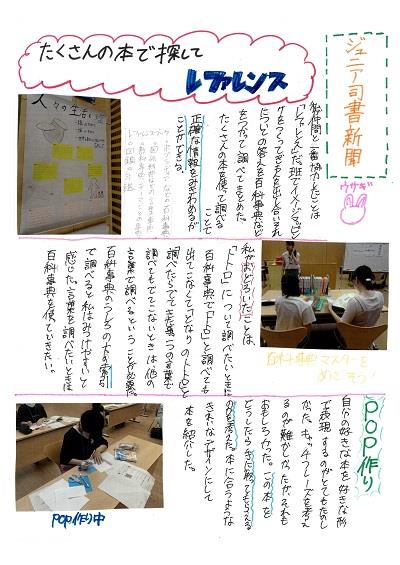 ジュニア司書新聞
ウサギ
たくさんの本で探して
レファレンス
私が仲間と一番協力したことは
「レファレンス」だ。班でイメージマッピン
グをつくってぎもんを出し合いそれ
についての答えを百科事典など
をつかって調べてまとめた。
たくさんの本を使って調べる
ことで
正確な情報をみきわめるが
ことができる。
人々の生活
私がおどろいたことは、
「トトロ」について調べたいときに
百科事典で「トトロ」と調べても
出てこなくて「となりのトトロ」と
調べたらでてきた。一つの言葉で
調べてもでてこないときは他の
言葉で調べるということが必要だ。
百科事典のうしろの下の索から
で調べると私はみつけやすいと
感じた。言葉を調べたいときは
百科事典を使っていきたい。
百科事典マスターを
めざそう!
POP作り
自分の好きな本を好きな形
で表現するのがとてもたのし
かった。キャッチフレーズを考え
るのが難かしかったが、それも
おもしろかった。この本を
どうしたら手に取ってもらえる
のかを考えた。本に合うような
きれいなデザインにして
本を紹介した。
POP作り中